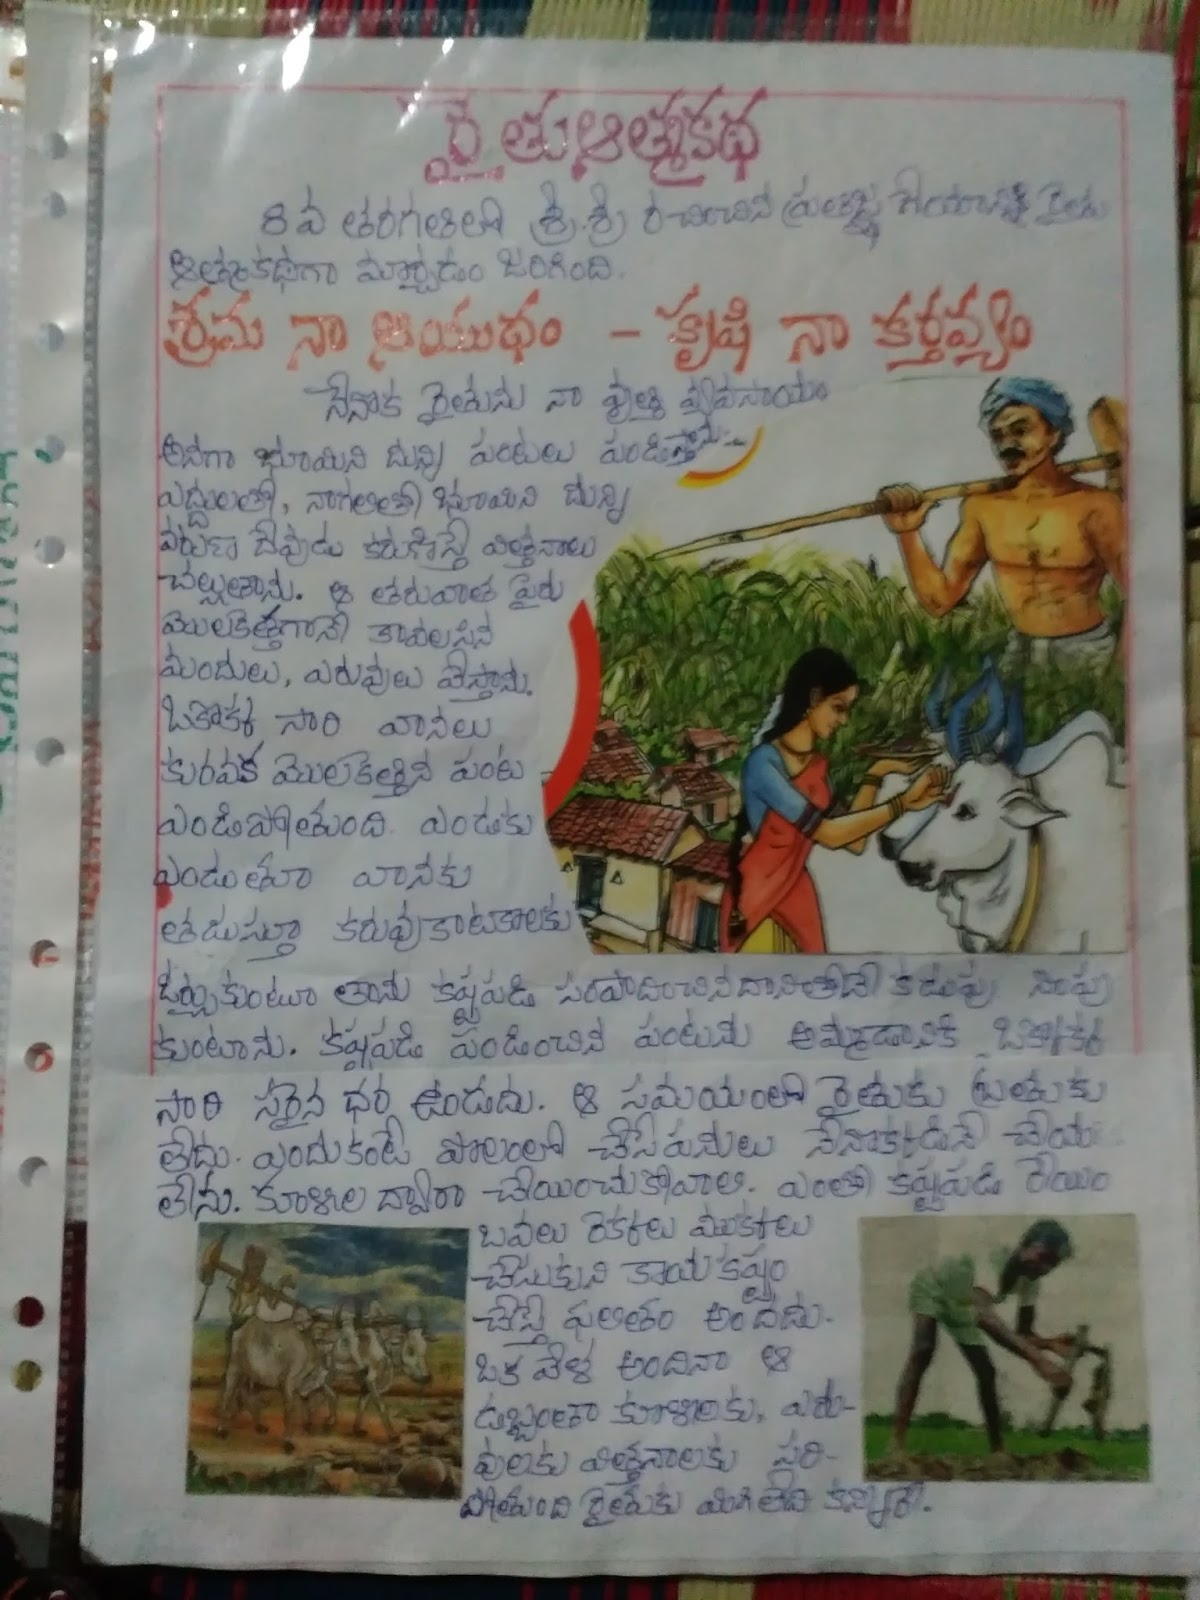 రైతు ఆత్మకథ
8వ తరగతిలో శ్రీ.శ్రీ రచించిన ప్రతిజ్ఞ గేయాన్ని రైతు
ఆత్మకథగా మార్చడం జరిగింది.
శ్రమ నా ఆయుధం - కృషి నా కర్తవ్యం
నేనొక రైతును నా వృత్తి వ్యవసాయం
అనగా భూమిని దున్ని పంటలు పండిస్తాను.
ఎద్దులతో, నాగలితో భూమిని దున్ని
వరుణ దేవుడు కరుణిస్తే విత్తనాలు
చల్లుతాను. ఆ తరువాత పైరు
మొలకెత్తగానే కావలసిన
మందులు, ఎరువులు వేస్తాను.
ఒకొక్క సారి వానలు
కురవక మొలకెత్తిన పంట
ఎండిపోతుంది. ఎండకు
ఎండుతూ వానకు
తడుస్తూ కరువుకాటకాలకు
ఓర్చుకుంటూ తాను కష్టపడి సంపాదించినదానితోనే కడుపు నింపు
కుంటాను. కష్టపడి పండించిన పంటను అమ్మడానికి ఒకొక్క
సారి సరైన ధర ఉండదు. ఆ సమయంలో రైతుకు బ్రతుకు
లేదు. ఎందుకంటే పొలంలో చేసే పనులు నేనొక్కడినే చేయ
లేను. కూలీల ద్వారా చేయించుకోవాలి. ఎంతో కష్టపడి రేయిం
బవలు రెక్కలు ముక్కలు
చేసుకుని కాయకష్టం
చేస్తే ఫలితం అందదు.
ఒక వేళ అందినా ఆ
డబ్బంతా కూలీలకు, ఎరు-
వులకు విత్తనాలకు సరి-
పోతుంది రైతుకు మిగిలేది కన్నీరే.